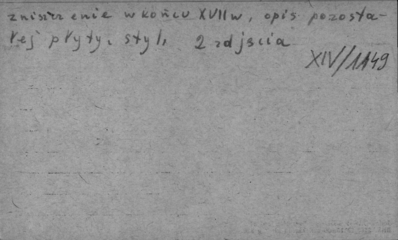 zniszczenie w końcu XVII w, opis pozosta-
łej płyty, styl, 2 zdjścia
XIV/1149